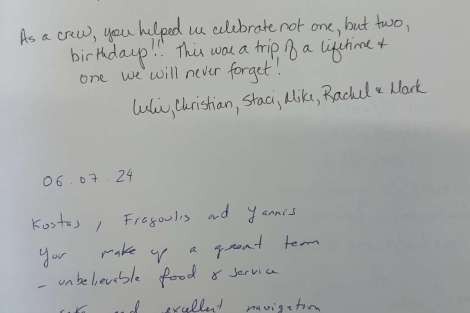 As a crew, you helped us celebrate not one, but two,
birthdays!!! This was a trip of a lifetime &
one we will never forget!
Christian, Staci, Mike, Rachel & Mark
06.07.24
Kostas, Fragoulis and Yannis
You make up a great team
- unbelievable food & service
and excellent navigation